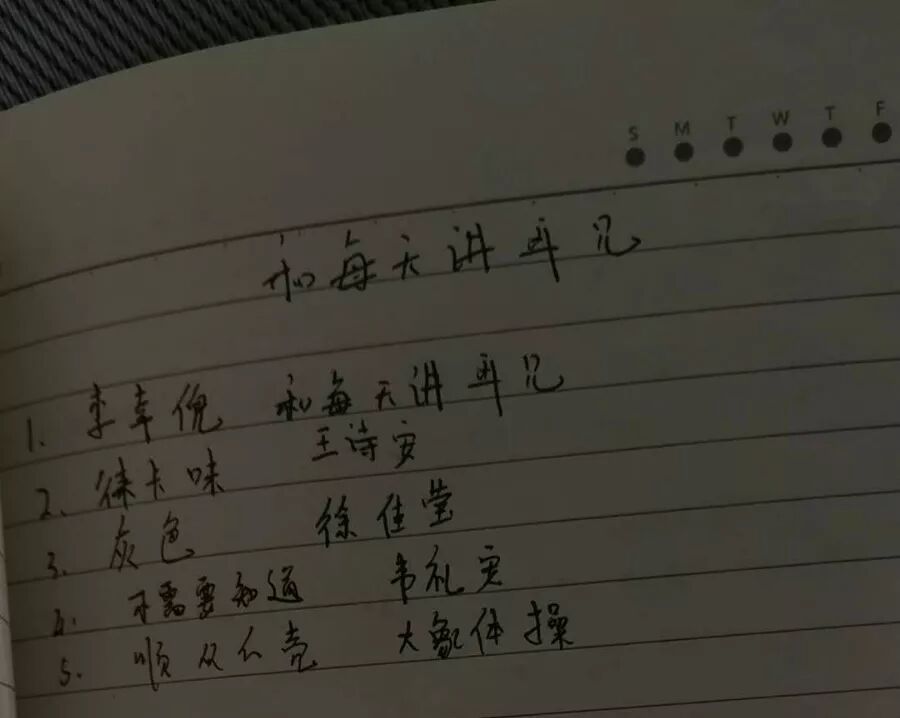 S M T W T F
和每天讲再见
1. 李幸倪 和每天讲再见
2. 徕卡味 王诗安
3. 灰色 徐佳莹
4. 不需要知道 韦礼安
5. 顺从 大象体操